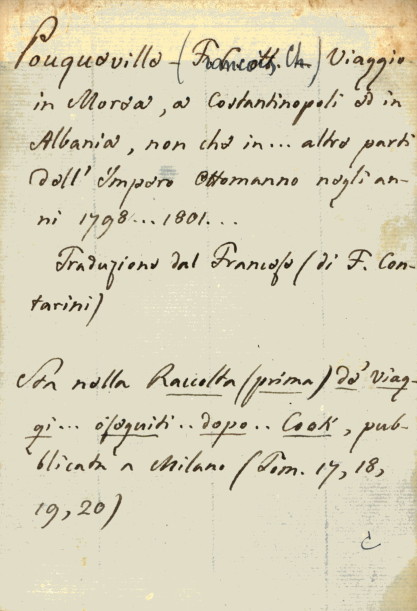 Pouqueville - (Ch.) Viaggio
in Morea, a Costantinopoli ed in
Albania, non che in... altre parti
dell' Impero Ottomanno negli an-
ni 1798... 1801...
Traduzione dal Francese (di F. Con-
tarini)
Sta nella Raccolta (prima) de' Viag-
gi... eseguiti.. dopo.. Cook, pub-
blicata a Milano (Tom. 17, 18,
19, 20)